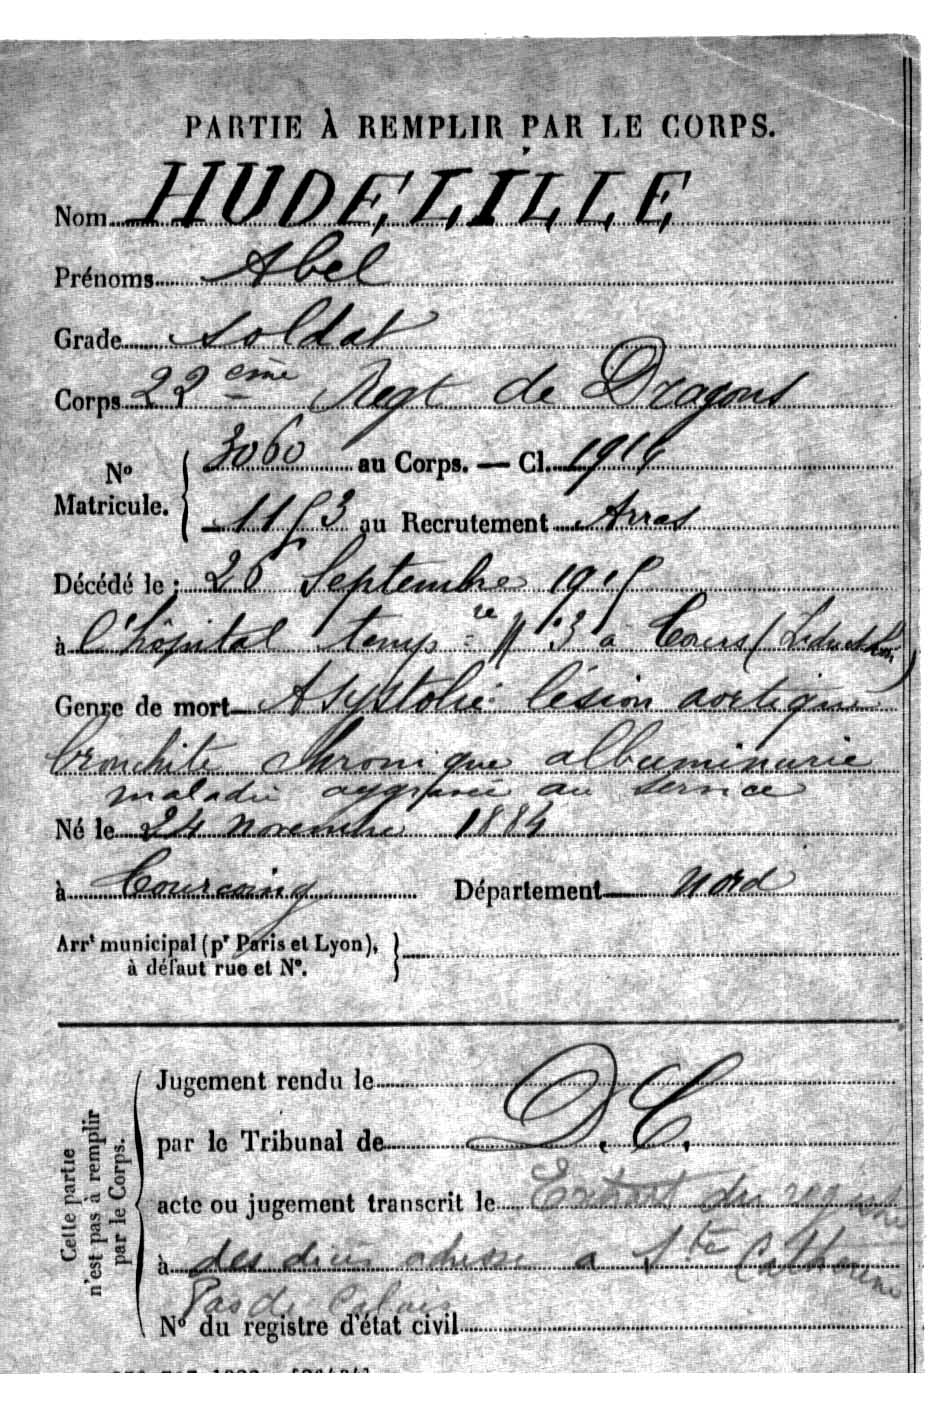 PARTIE À REMPLIR PAR LE CORPS.
Nom HUDELILLE
Prénoms Abel
Grade Soldat
Corps 22 ème Regt de Dragons
3060 au Corps. — Cl. 1914
N°
Matricule.
1153 au Recrutement Arras
Décédé le : 26 Septembre 1915
à l'hôpital temp re N° 3 à Cours (
Genre de mort Asystolie lésion aortique
bronchite chronique albuminurie
maladie aggravée au service
Né le 24 novembre 1884
à Tourcoing Département Nord
Arrt municipal (pr Paris et Lyon),
à défaut rue et N°.
Cette partie
n'est pas à remplir
par le Corps.
Jugement rendu le
par le Tribunal de D.C.
acte ou jugement transcrit le Extrait du registre
à des décès adressé à Ste Catherine
Pas de Calais
N° du registre d'état civil